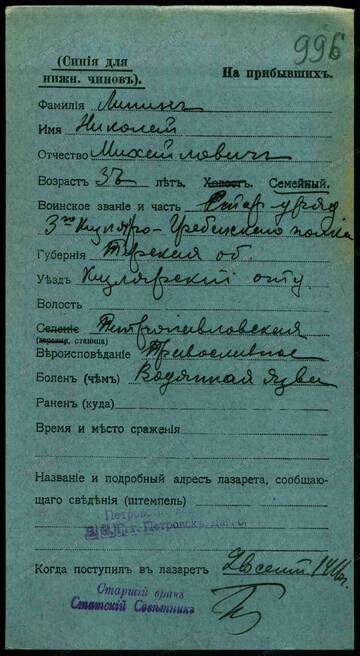 996
(Синія для
нижн. чиновъ).
На прибывшихъ.
Фамилія Липинъ
Имя Николай
Отчество Михайловичъ
Возрастъ 32 лѣтъ. Холостъ. Семейный.
Воинское званіе и часть Стар. уряд.
3го Кизляро-Гребенского полка
Губернія Терская об.
Уѣздъ Кизлярскій отд.
Волость
Селеніе Петропавловская
(станица)
Вѣроисповѣданіе Православное
Боленъ (чѣмъ) язва
Раненъ (куда)
Время и мѣсто сраженія
Названіе и подробный адресъ лазарета, сообщаю-
щаго свѣдѣнія (штемпель)
г. Петровскъ, Даг. о.
Когда поступилъ въ лазаретъ сент. 1916г.
Старшій врачъ
Статскій Совѣтникъ